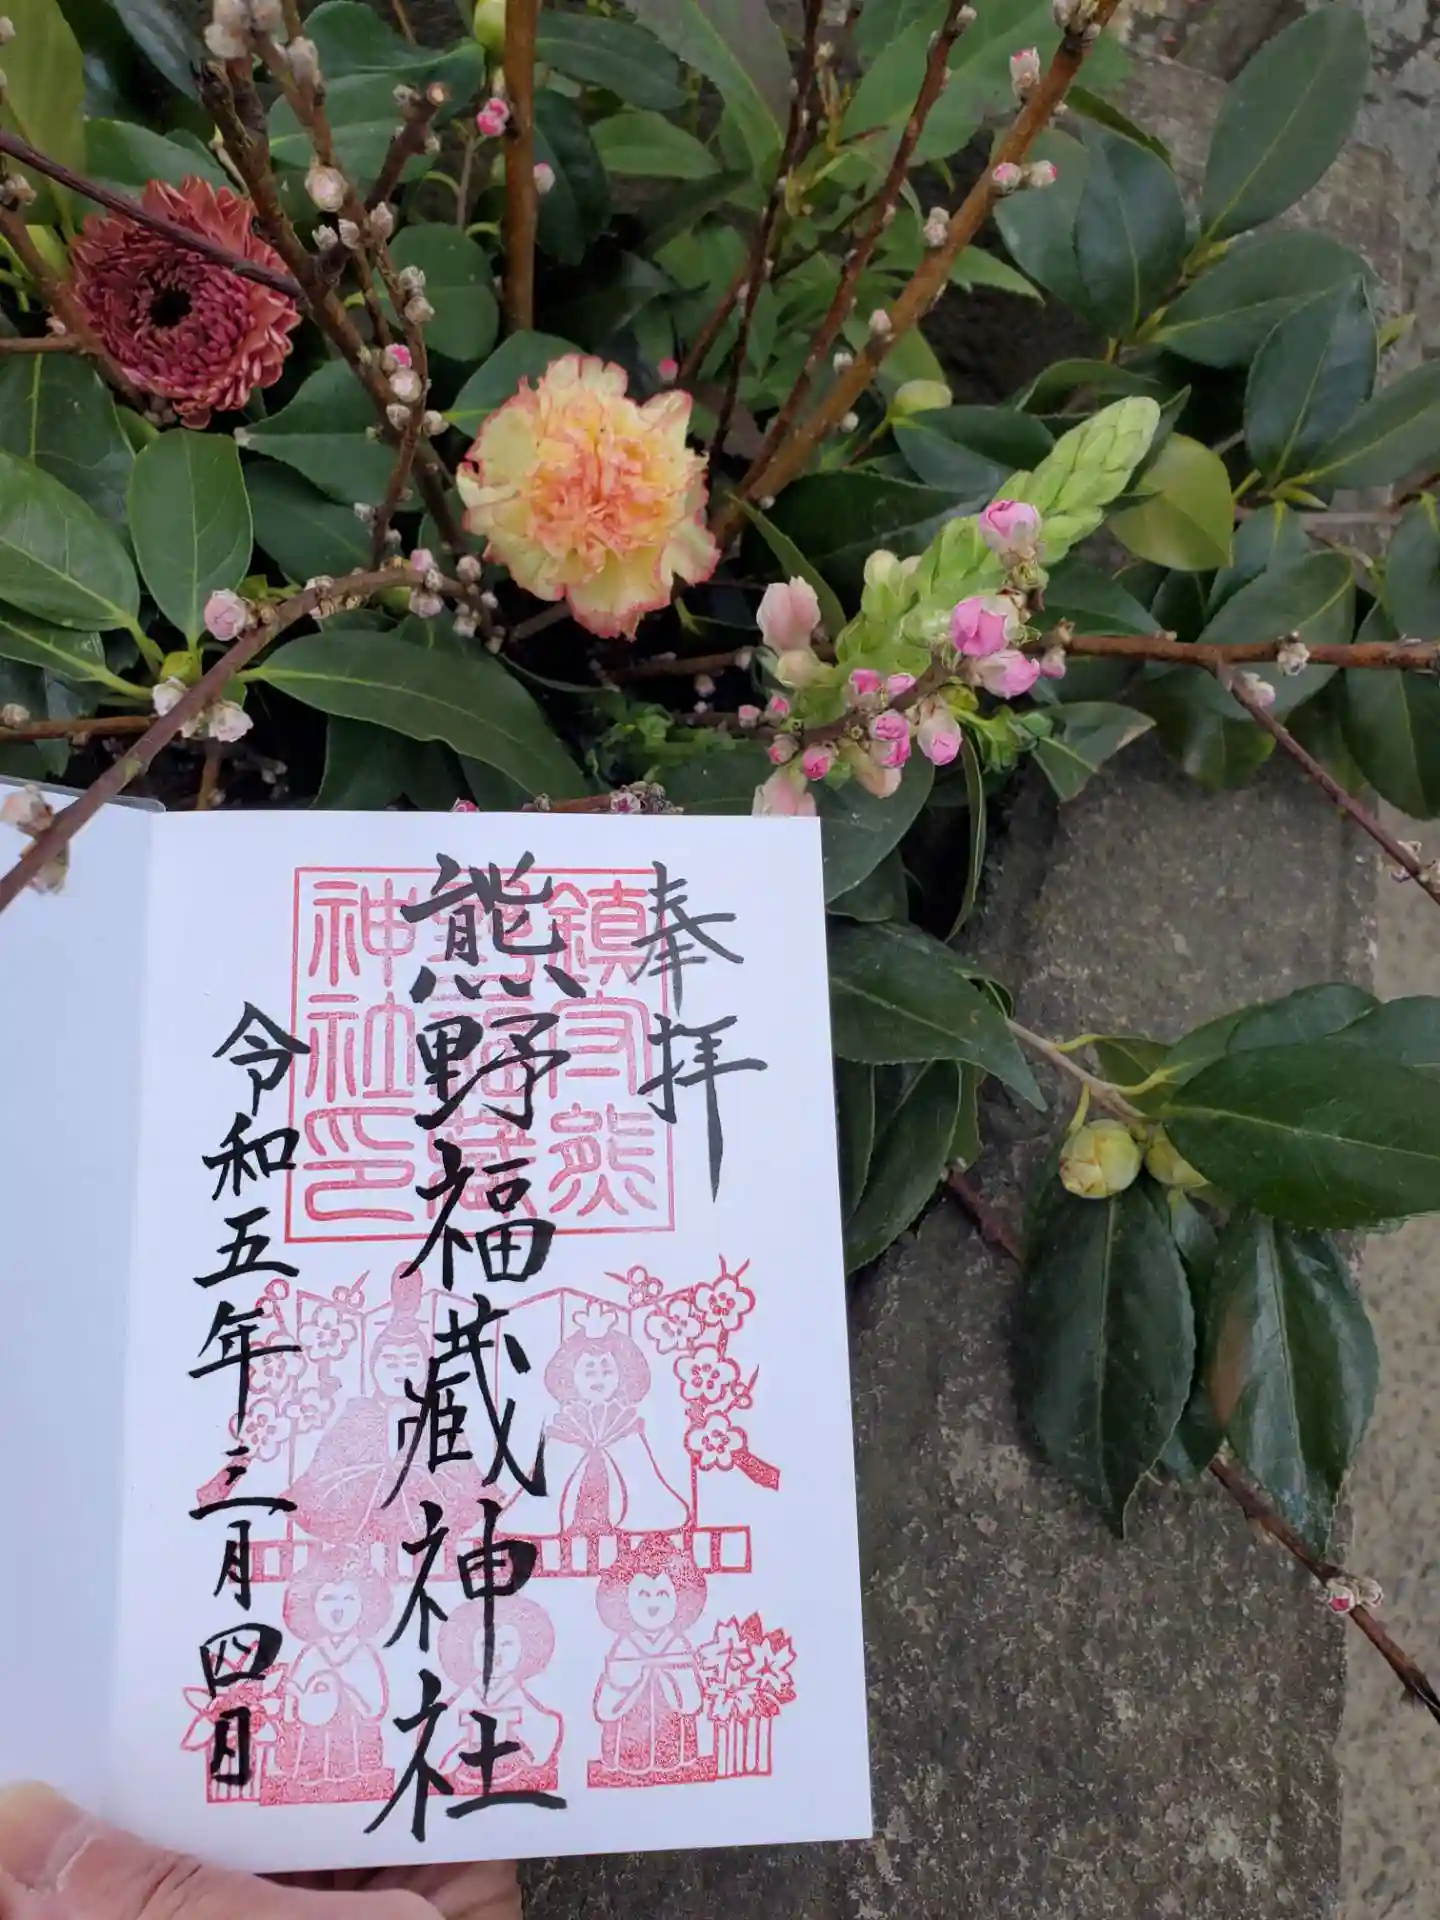 奉拝
熊野福藏神社
令和五年三月四日
鎮守熊
野福藏
神社印